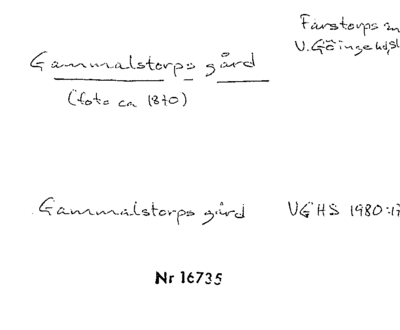 Färstorps
V. Göinge hd, sk
Gammalstorps gård
(foto ca 1870)
Gammalstorps gård VGHS 1980:17
Nr 16735